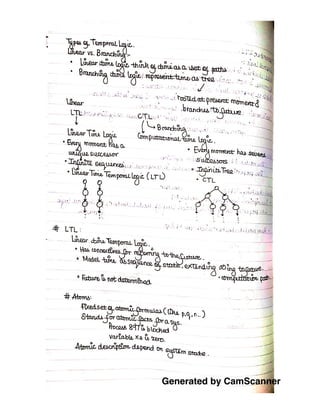 Types of Temporal Logic.
Linear vs. Branching -
• Linear time logic think of time as a set of paths
• Branching time logic: represent time as tree
rooted at present moment &
branches to future.
Linear
LTL
CTL
Branching
Linear Time Logic
Computational Time Logic.
• Every moment has a
unique successor
• Every moment has several
successors
• Infinite sequences
• Infinite Tree
• Linear Time Temporal Logic (LTL)
• CTL
# LTL:
Linear time Temporal Logic.
• Has connectives for referring to the future.
• Model time as sequence of states, extending to future
- computation path
• Future is not determined
# Atoms:
Fixed set of atomic formulas (like p,q,r...)
Stands for atomic facts for a sys.
Process 897 is blocked
variable xa is zero.
Atomic description depend on system stake.
Generated by CamScanner